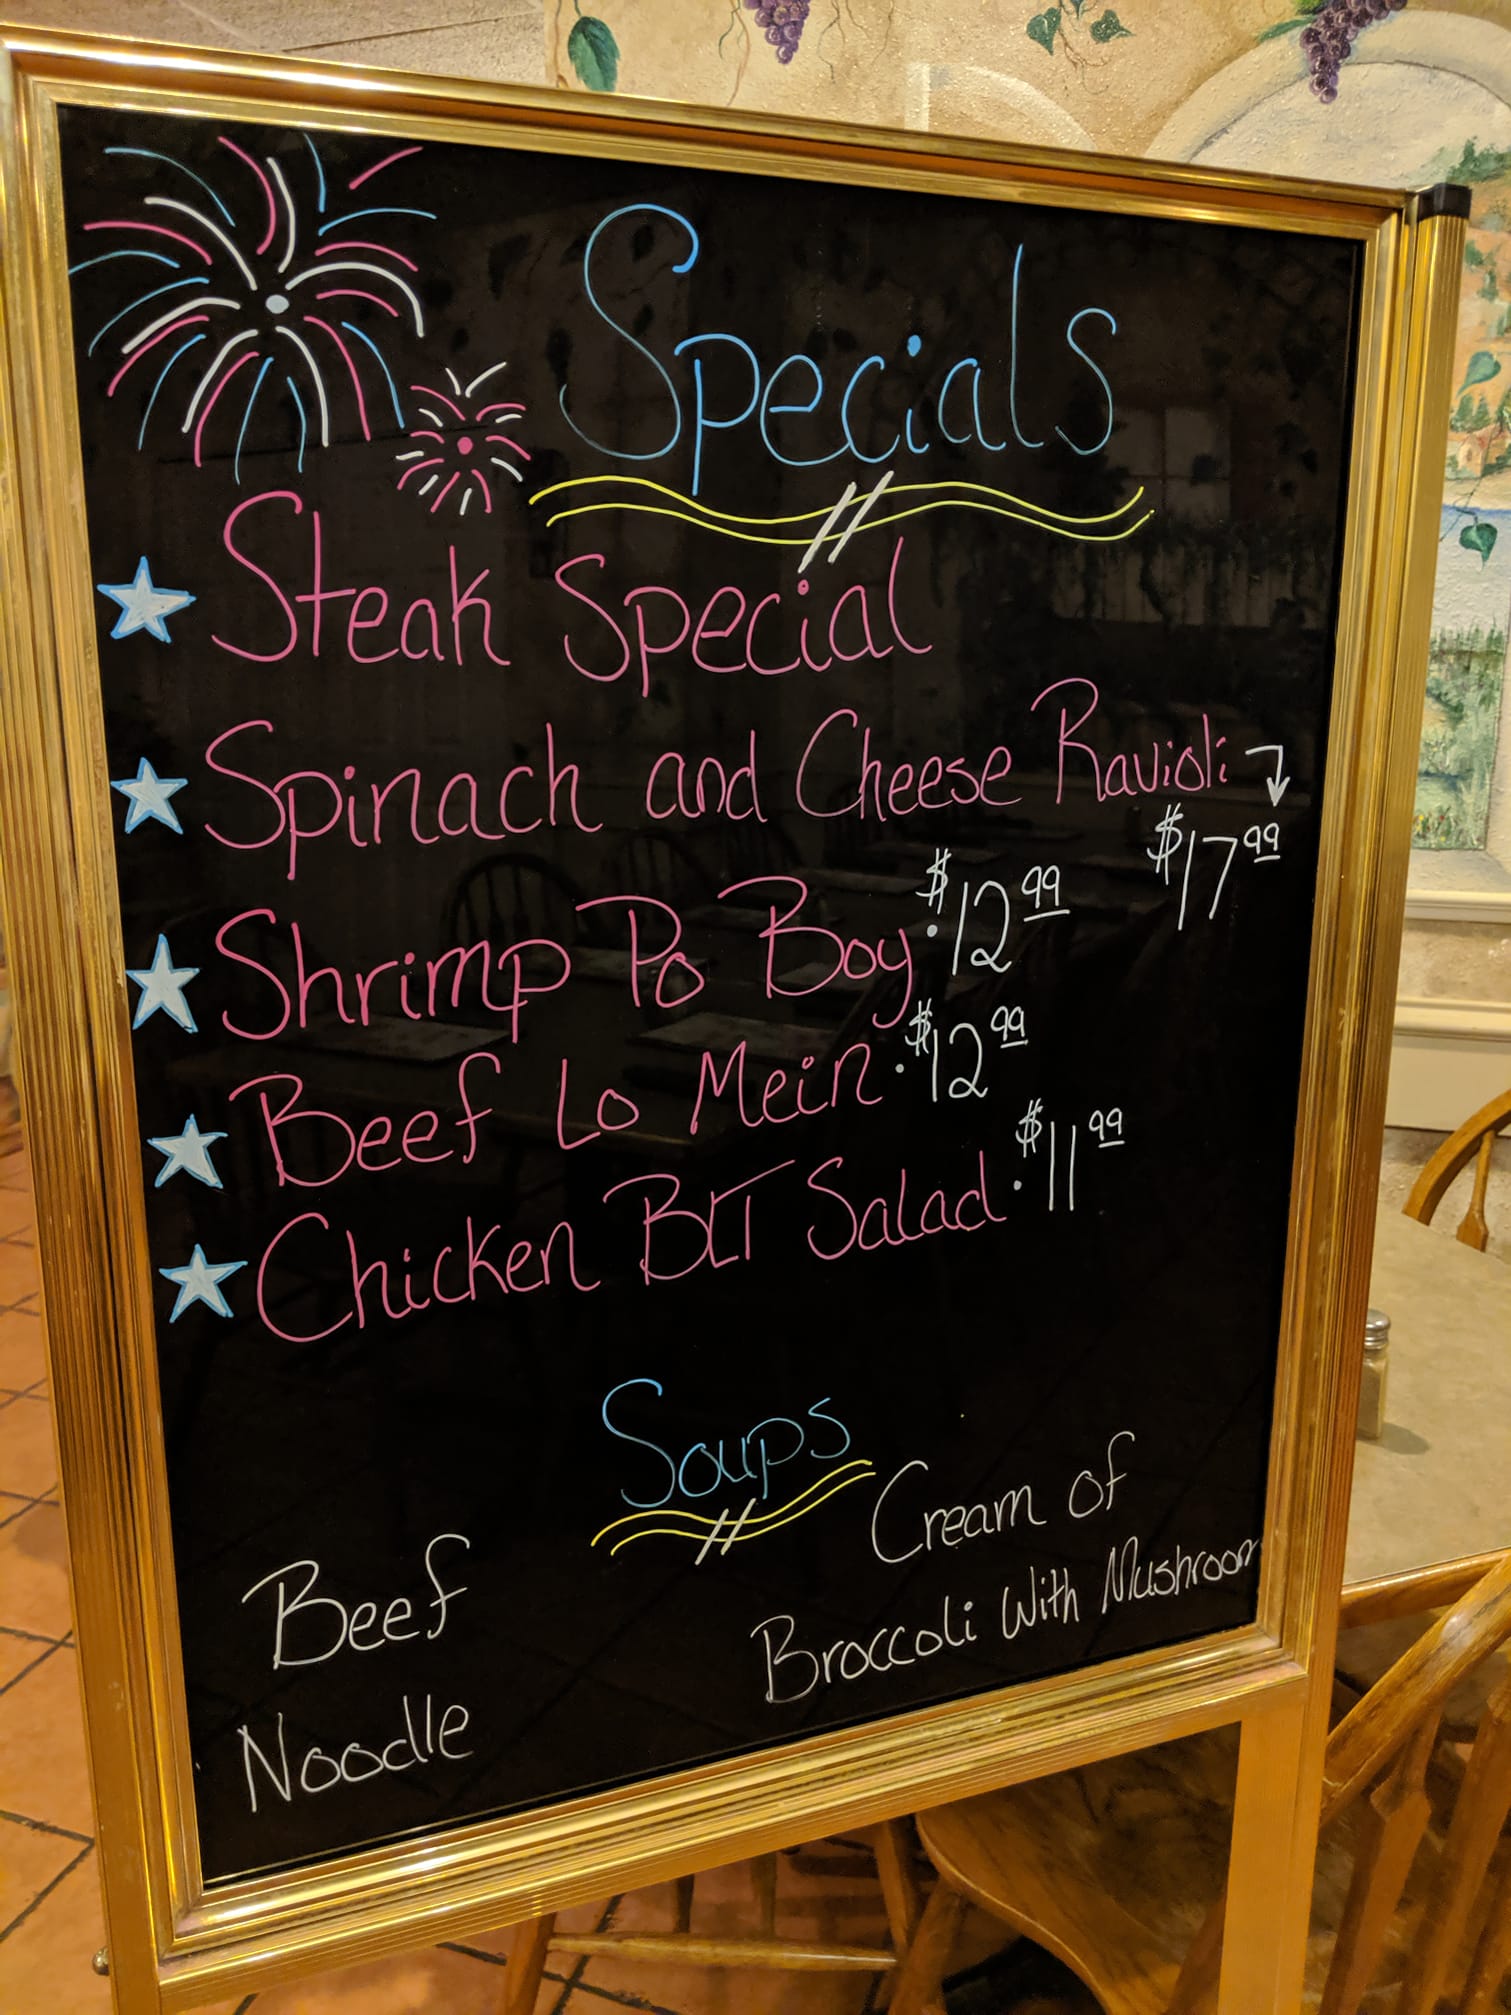 Specials
Steak Special
Spinach and Cheese Ravioli
$17.99
Shrimp Po Boy · $12.99
Beef Lo Mein · $12.99
Chicken BLT Salad · $11.99
Soups
Beef
Noodle
Cream of
Broccoli With Mushroom